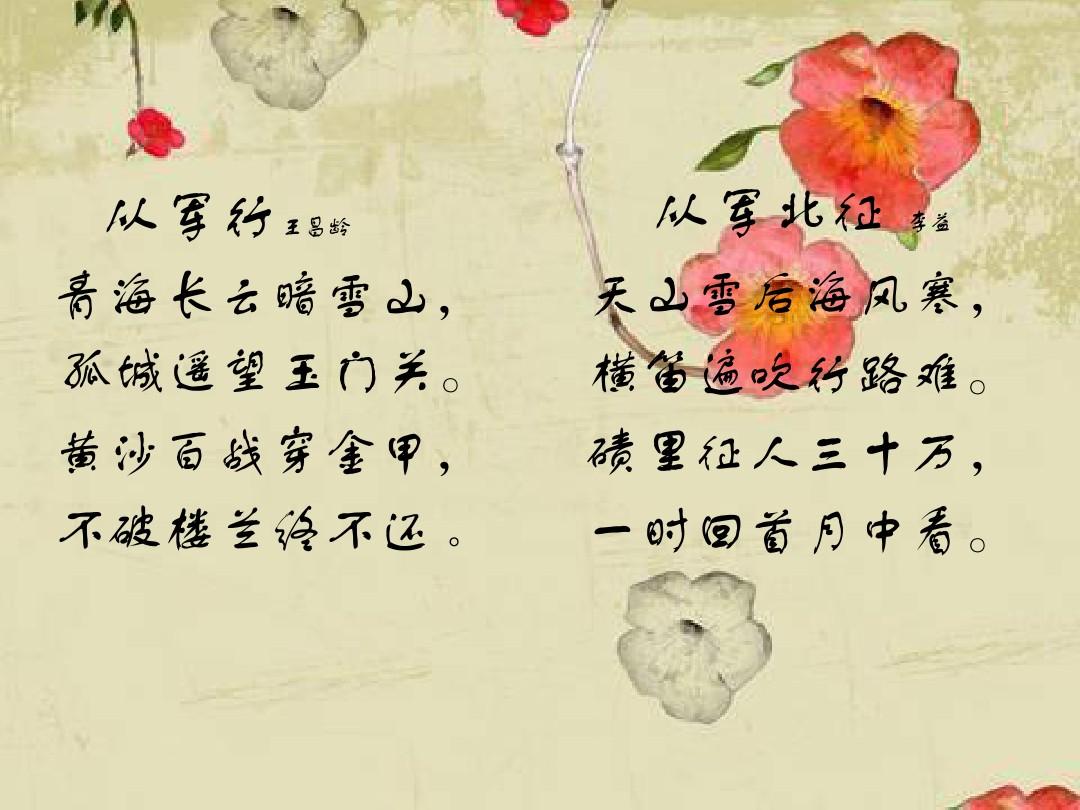 从军行 王昌龄
青海长云暗雪山，
孤城遥望玉门关。
黄沙百战穿金甲，
不破楼兰终不还。
从军北征 李益
天山雪后海风寒，
横笛遍吹行路难。
碛里征人三十万，
一时回首月中看。